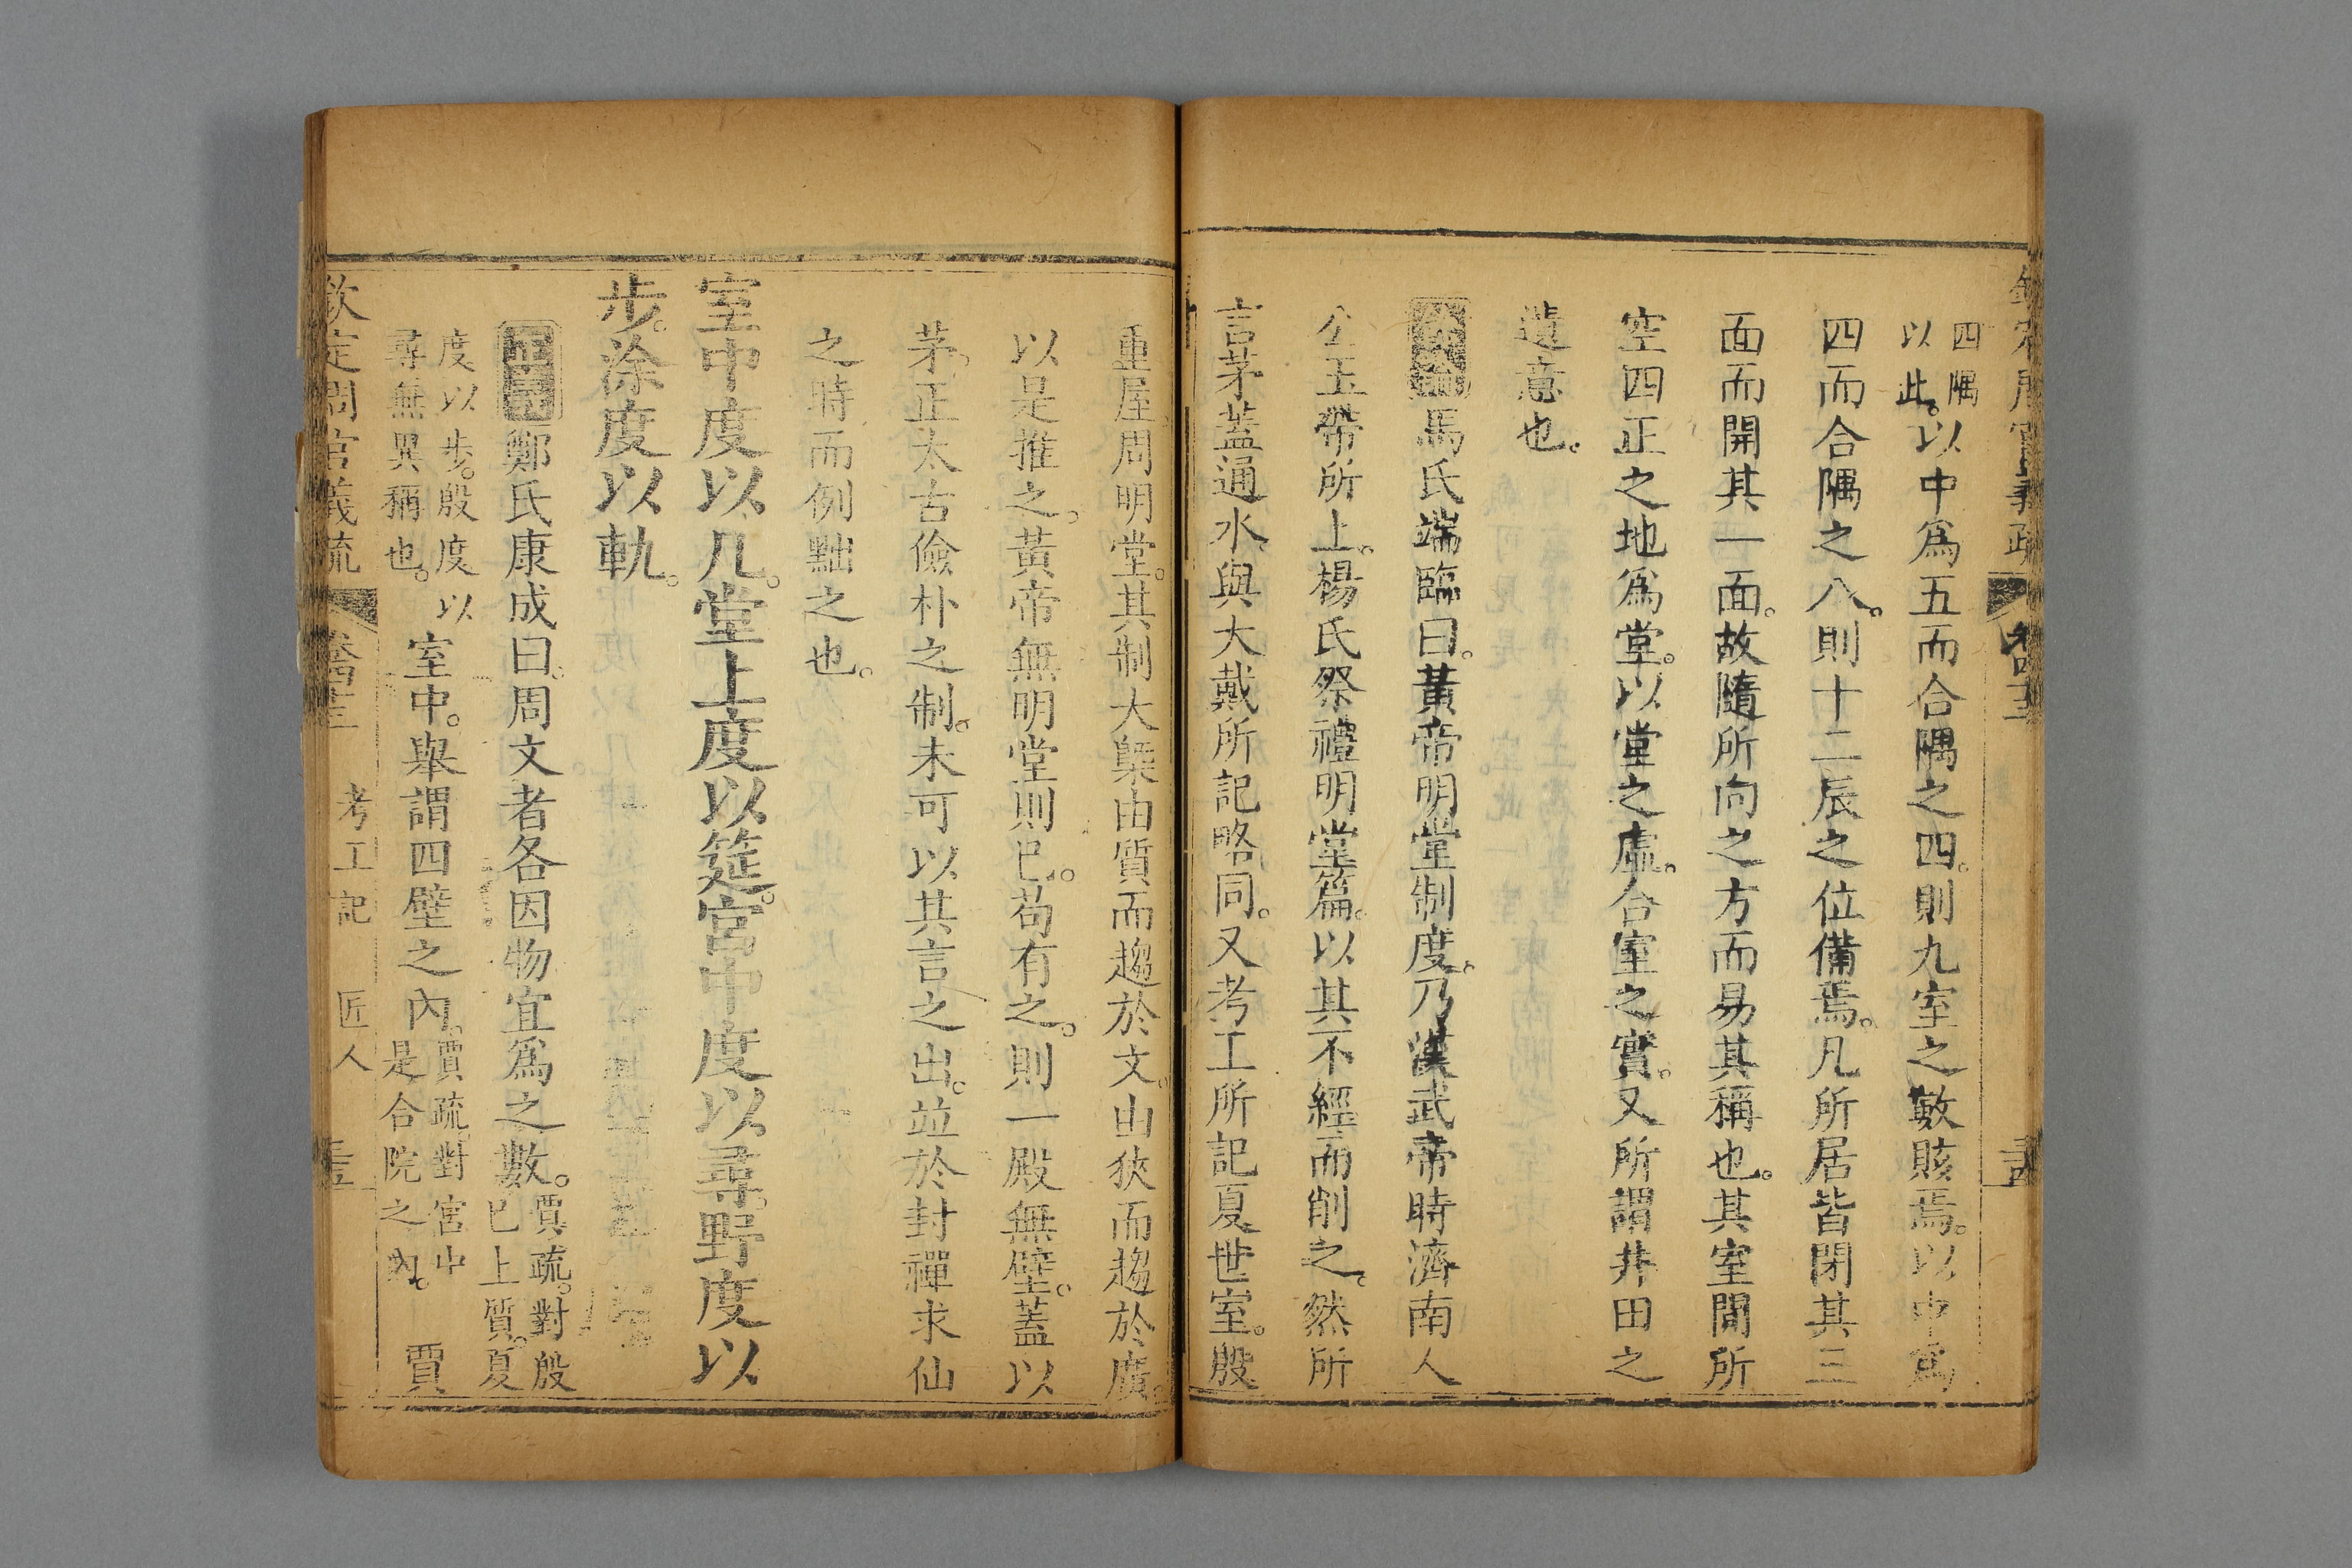 欽定周官義疏 卷四十三
四隅
以此。以中爲五而合隅之四。則九室之數賅焉。以中爲
四而合隅之八。則十二辰之位備焉。凡所居皆閉其三
面而開其一面。故隨所向之方而易其稱也。其室閒所
空四正之地爲堂。以堂之虛。合室之實。又所謂井田之
遺意也。
馬氏端臨曰。黃帝明堂制度。乃漢武帝時濟南人
公玉帶所上。楊氏祭禮明堂篇。以其不經而削之。然所
言茅蓋通水。與大戴所記略同。又考工所記夏世室。殷
重屋周明堂。其制大槩由質而趨於文。由狹而趨於廣。
以是推之。黃帝無明堂則已。苟有之。則一殿無壁。蓋以
茅。正太古儉朴之制。未可以其言之出。竝於封禪求仙
之時而例黜之也。
室中度以几。堂上度以筵。宮中度以尋。野度以
步。涂度以軌。
鄭氏康成曰。周文者各因物宜爲之數。賈疏。對殷
已上質。夏
度以步。殷度以
尋無異稱也。室中。舉謂四壁之內。賈疏對宮中
是合院之內。賈
欽定周官義疏 卷四十三 考工記 匠人